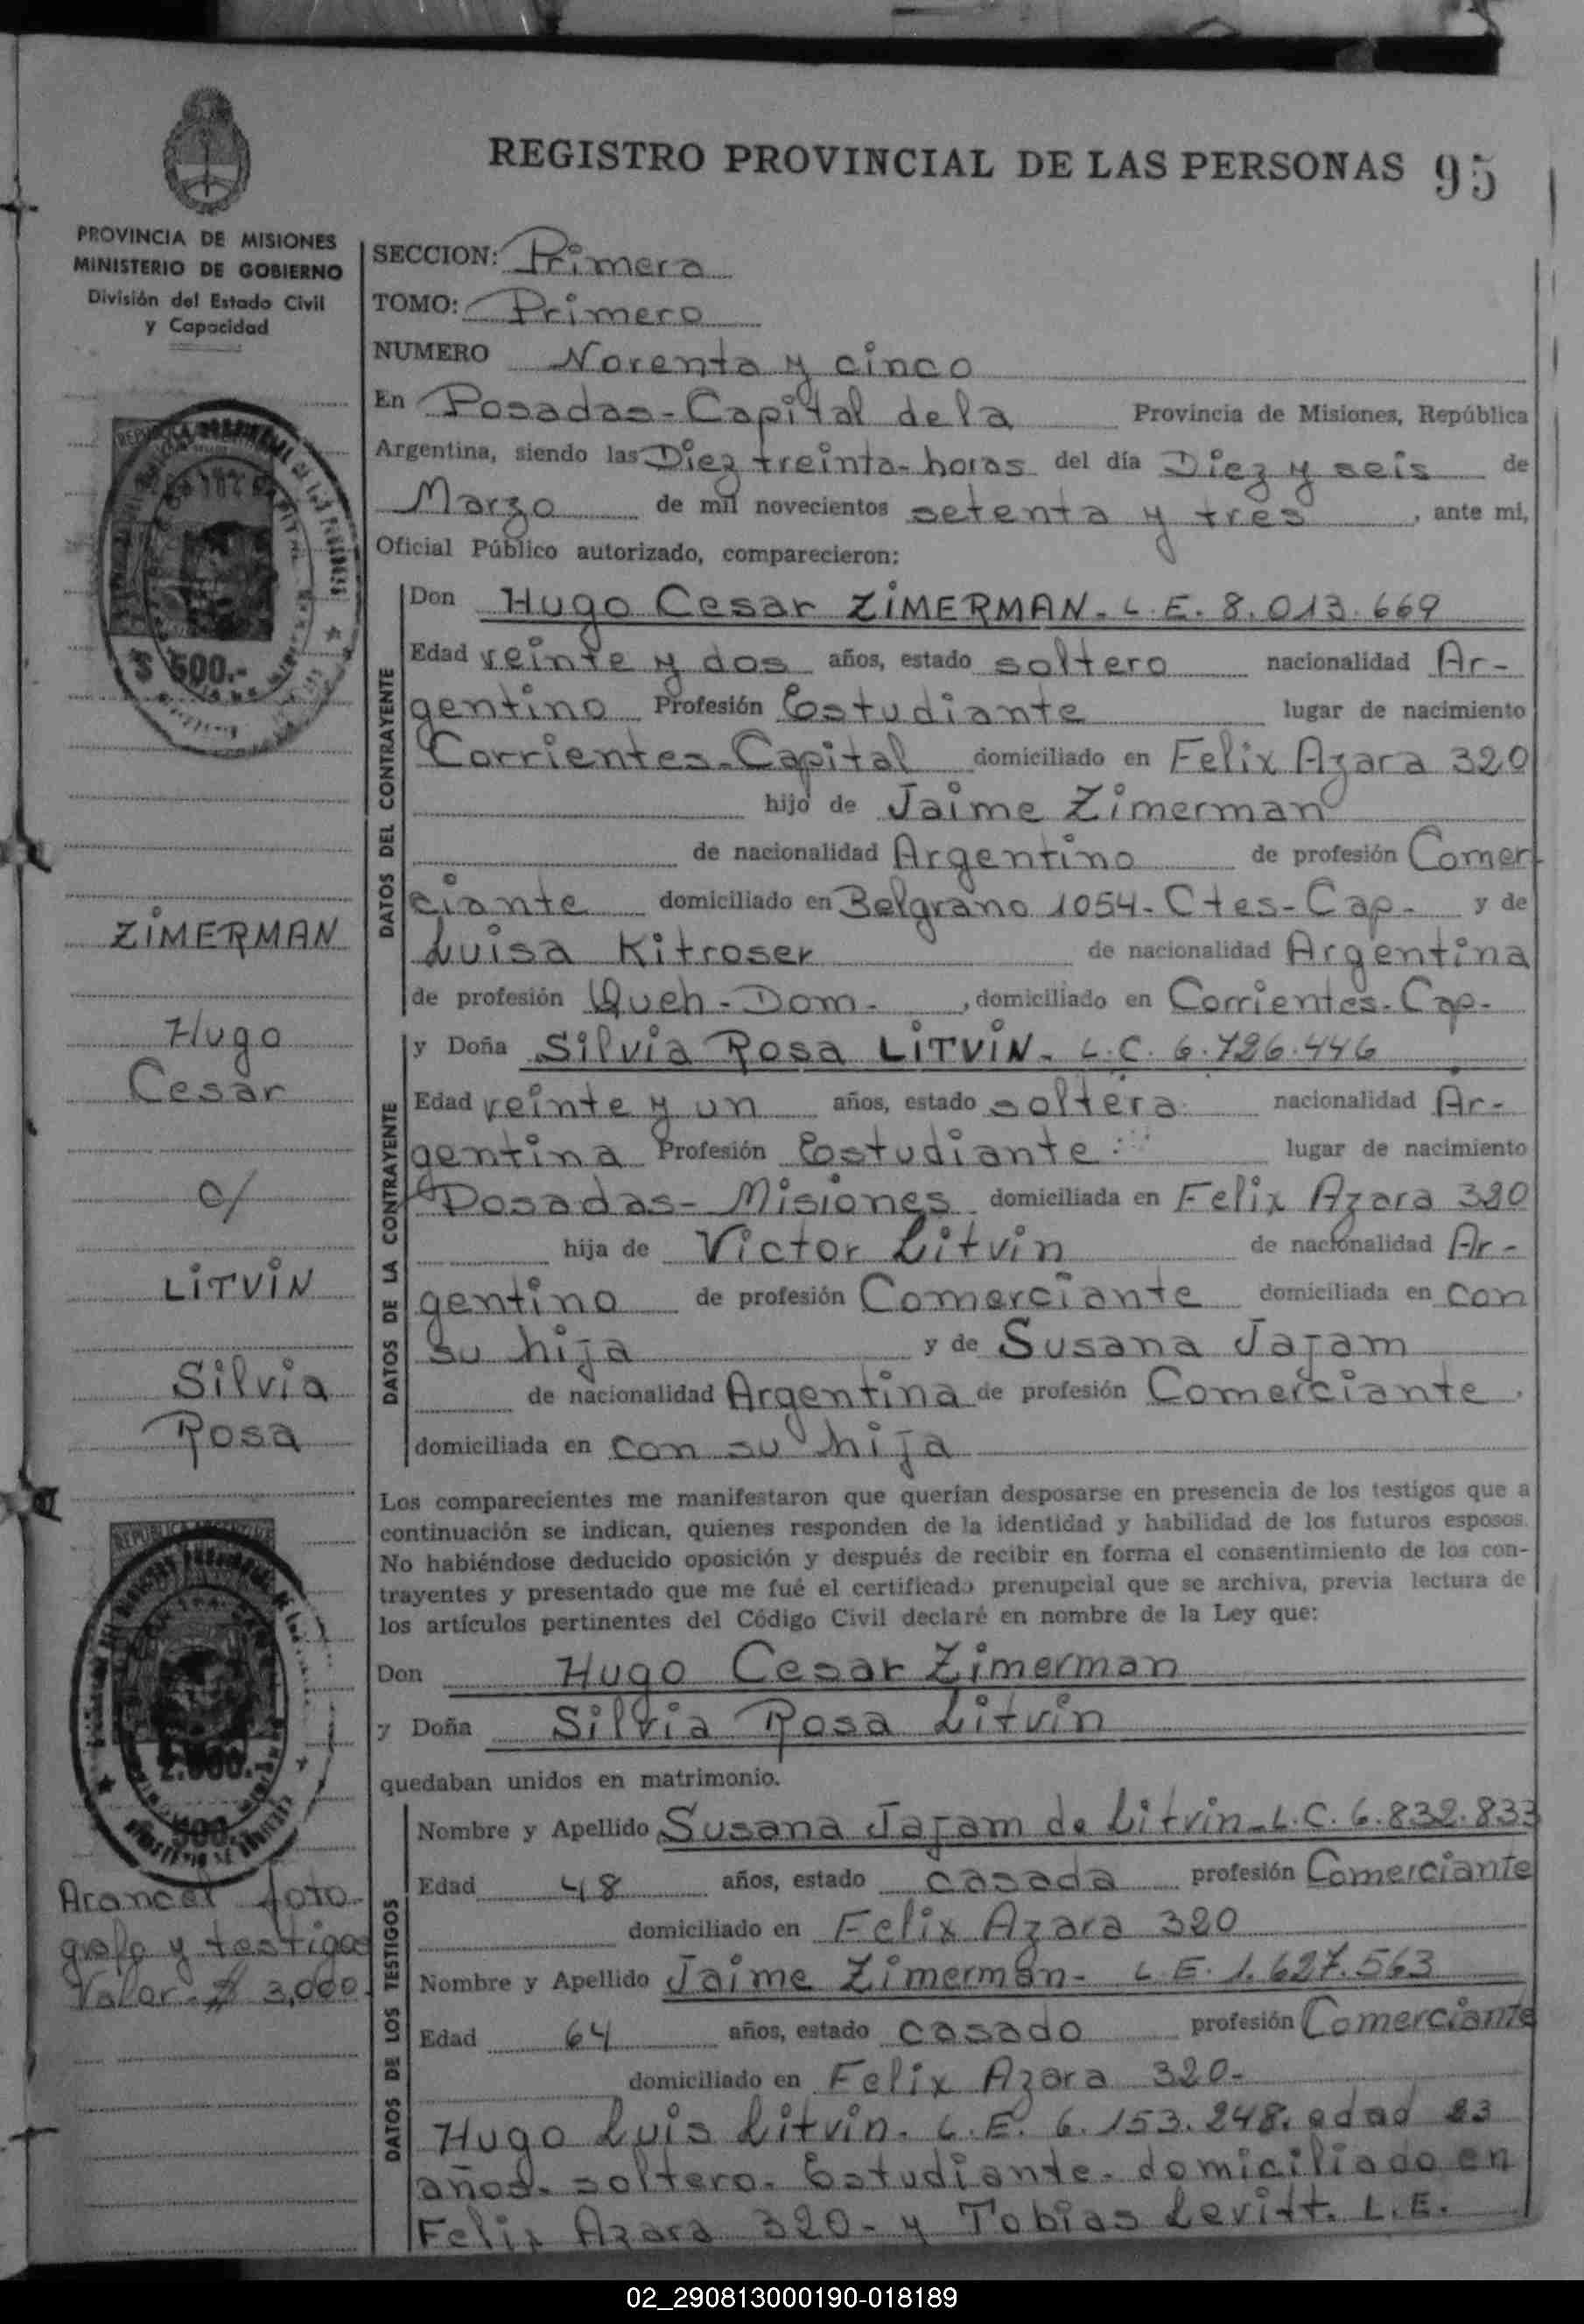 REGISTRO PROVINCIAL DE LAS PERSONAS 95
PROVINCIA DE MISIONES
MINISTERIO DE GOBIERNO
División del Estado Civil
y Capacidad
SECCION: Primera
TOMO: Primero
NUMERO Noventa y cinco
En Posadas-Capital de la Provincia de Misiones, República
Argentina, siendo las Diez treinta-horas del día Diez y seis de
Marzo de mil novecientos setenta y tres, ante mi,
Oficial Público autorizado, comparecieron:
DATOS DEL CONTRAYENTE
Don Hugo Cesar ZIMERMAN- L.E. 8.013.669
Edad veinte y dos años, estado soltero nacionalidad Ar-
gentino Profesión Estudiante lugar de nacimiento
Corrientes-Capital domiciliado en Felix Azara 320
hijo de Jaime Zimerman
de nacionalidad Argentino de profesión Comer-
ciante domiciliado en Belgrano 1054- Ctes-Cap- y de
Luisa Kitroser de nacionalidad Argentina
de profesión Queh-Dom-, domiciliado en Corrientes-Cap-
DATOS DE LA CONTRAYENTE
y Doña Silvia Rosa LITVIN- L.C. 6.726.446
Edad veinte y un años, estado soltera nacionalidad Ar-
gentina Profesión Estudiante lugar de nacimiento
Posadas-Misiones domiciliada en Felix Azara 320
hija de Victor Litvin de nacionalidad Ar-
gentino de profesión Comerciante domiciliada en con
su hija y de Susana Jajam
de nacionalidad Argentina de profesión Comerciante,
domiciliada en con su hija
Los comparecientes me manifestaron que querían desposarse en presencia de los testigos que a
continuación se indican, quienes responden de la identidad y habilidad de los futuros esposos.
No habiéndose deducido oposición y después de recibir en forma el consentimiento de los con-
trayentes y presentado que me fué el certificado prenupcial que se archiva, previa lectura de
los artículos pertinentes del Código Civil declaré en nombre de la Ley que:
Don Hugo Cesar Zimerman
y Doña Silvia Rosa Litvin
quedaban unidos en matrimonio.
DATOS DE LOS TESTIGOS
Nombre y Apellido Susana Jajam de Litvin- L.C. 6.832.833
Edad 48 años, estado casada profesión Comerciante
domiciliado en Felix Azara 320
Nombre y Apellido Jaime Zimerman- L.E. 1.627.563
Edad 64 años, estado casado profesión Comerciante
domiciliado en Felix Azara 320-
Hugo Luis Litvin- L.E. 6.153.248. edad 23
años- soltero- Estudiante- domiciliado en
Felix Azara 320- y Tobias Levitt. L.E.
$ 500.-
ZIMERMAN
Hugo
Cesar
c/
LITVIN
Silvia
Rosa
2.000.-
Arancel foto
grafo y testigos
Valor- $ 3,000
02_290813000190-018189